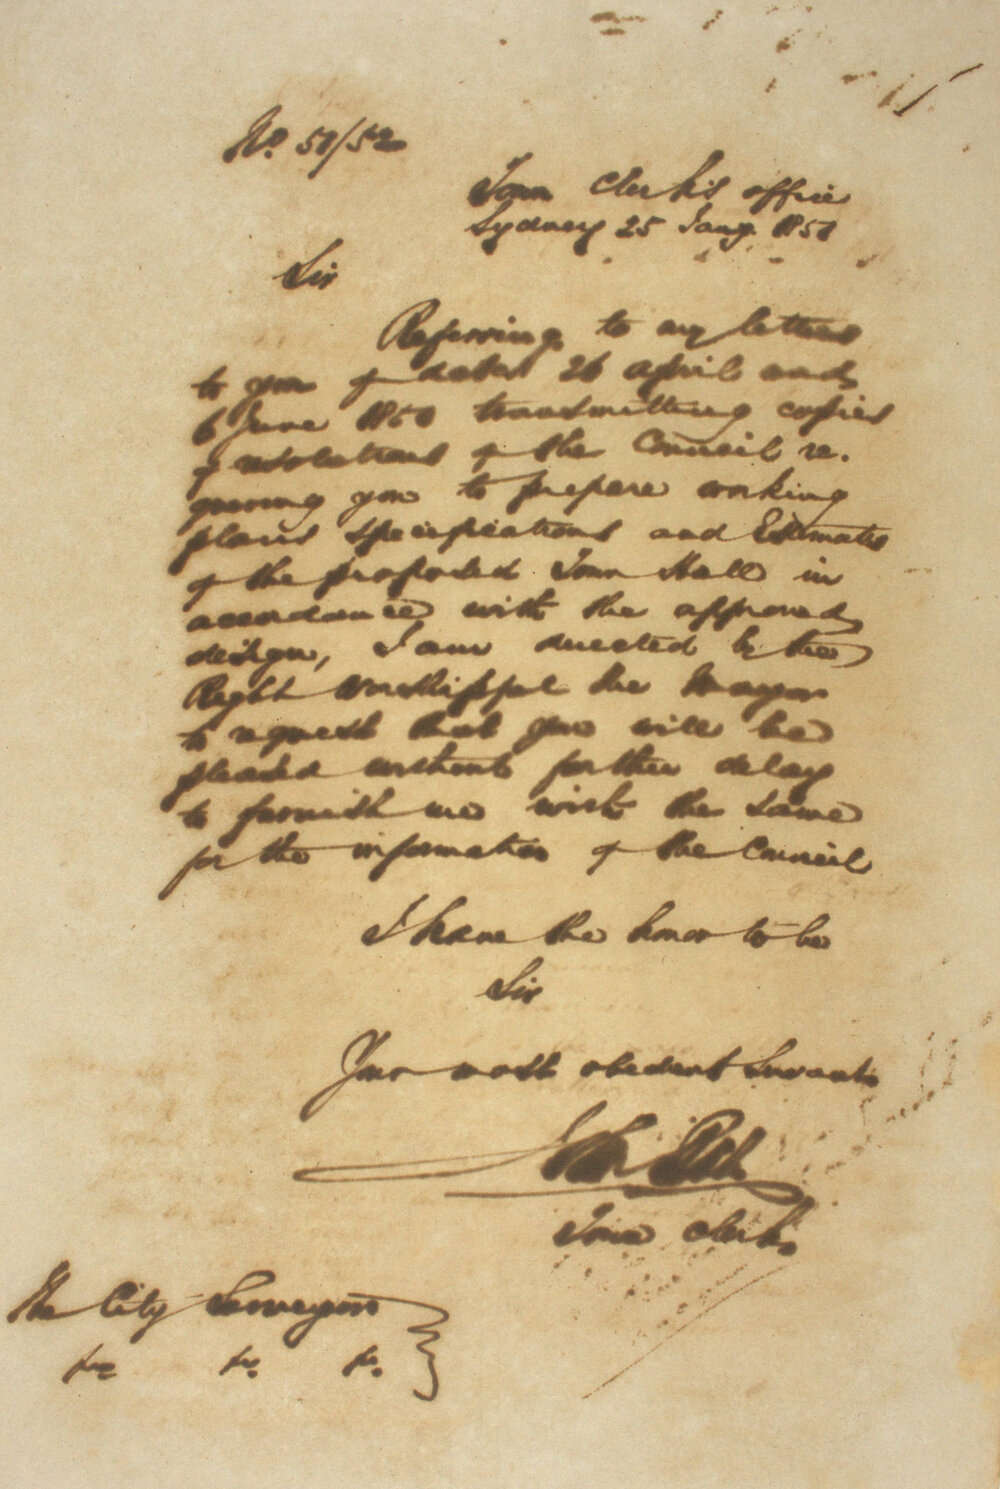 No. 51/52
Town Clerk's office
Sydney 25 Jany. 1851
Sir
Referring to my letters
to you of dates 26 april and
6 June 1850 transmitting copies
of resolutions of the Council re-
quiring you to prepare working
plans specifications and Estimates
of the proposed Town Hall in
accordance with the approved
design, I am directed by the
Right Worshipful the Mayor
to request that you will be
pleased without further delay
to furnish me with the same
for the information of the Council
I have the honor to be
Sir
Your most obedient Servant
John
Town Clerk
The City Surveyor